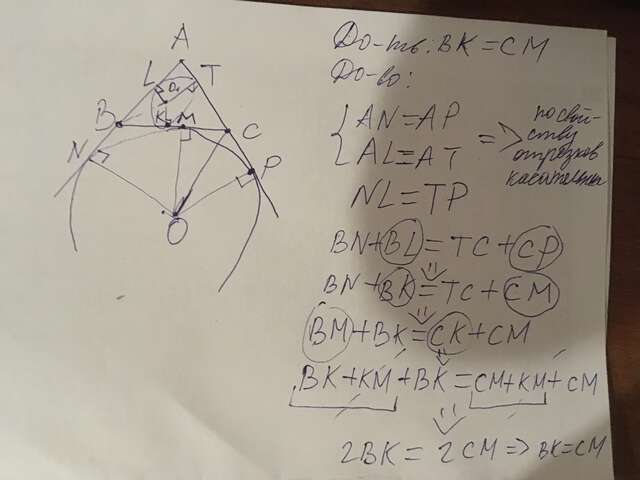 A
T
L
B
N
O₁
K
M
C
O
P
До-ть: BK=CM
До-во:
{AN=AP
AL=AT => по свой-
ству
отрезков
касательных
NL=TP
BN+BL=TC+CP
BN+BK=TC+CM
BM+BK=CK+CM
BK+KM+BK=CM+KM+CM
2BK=2CM=>BK=CM